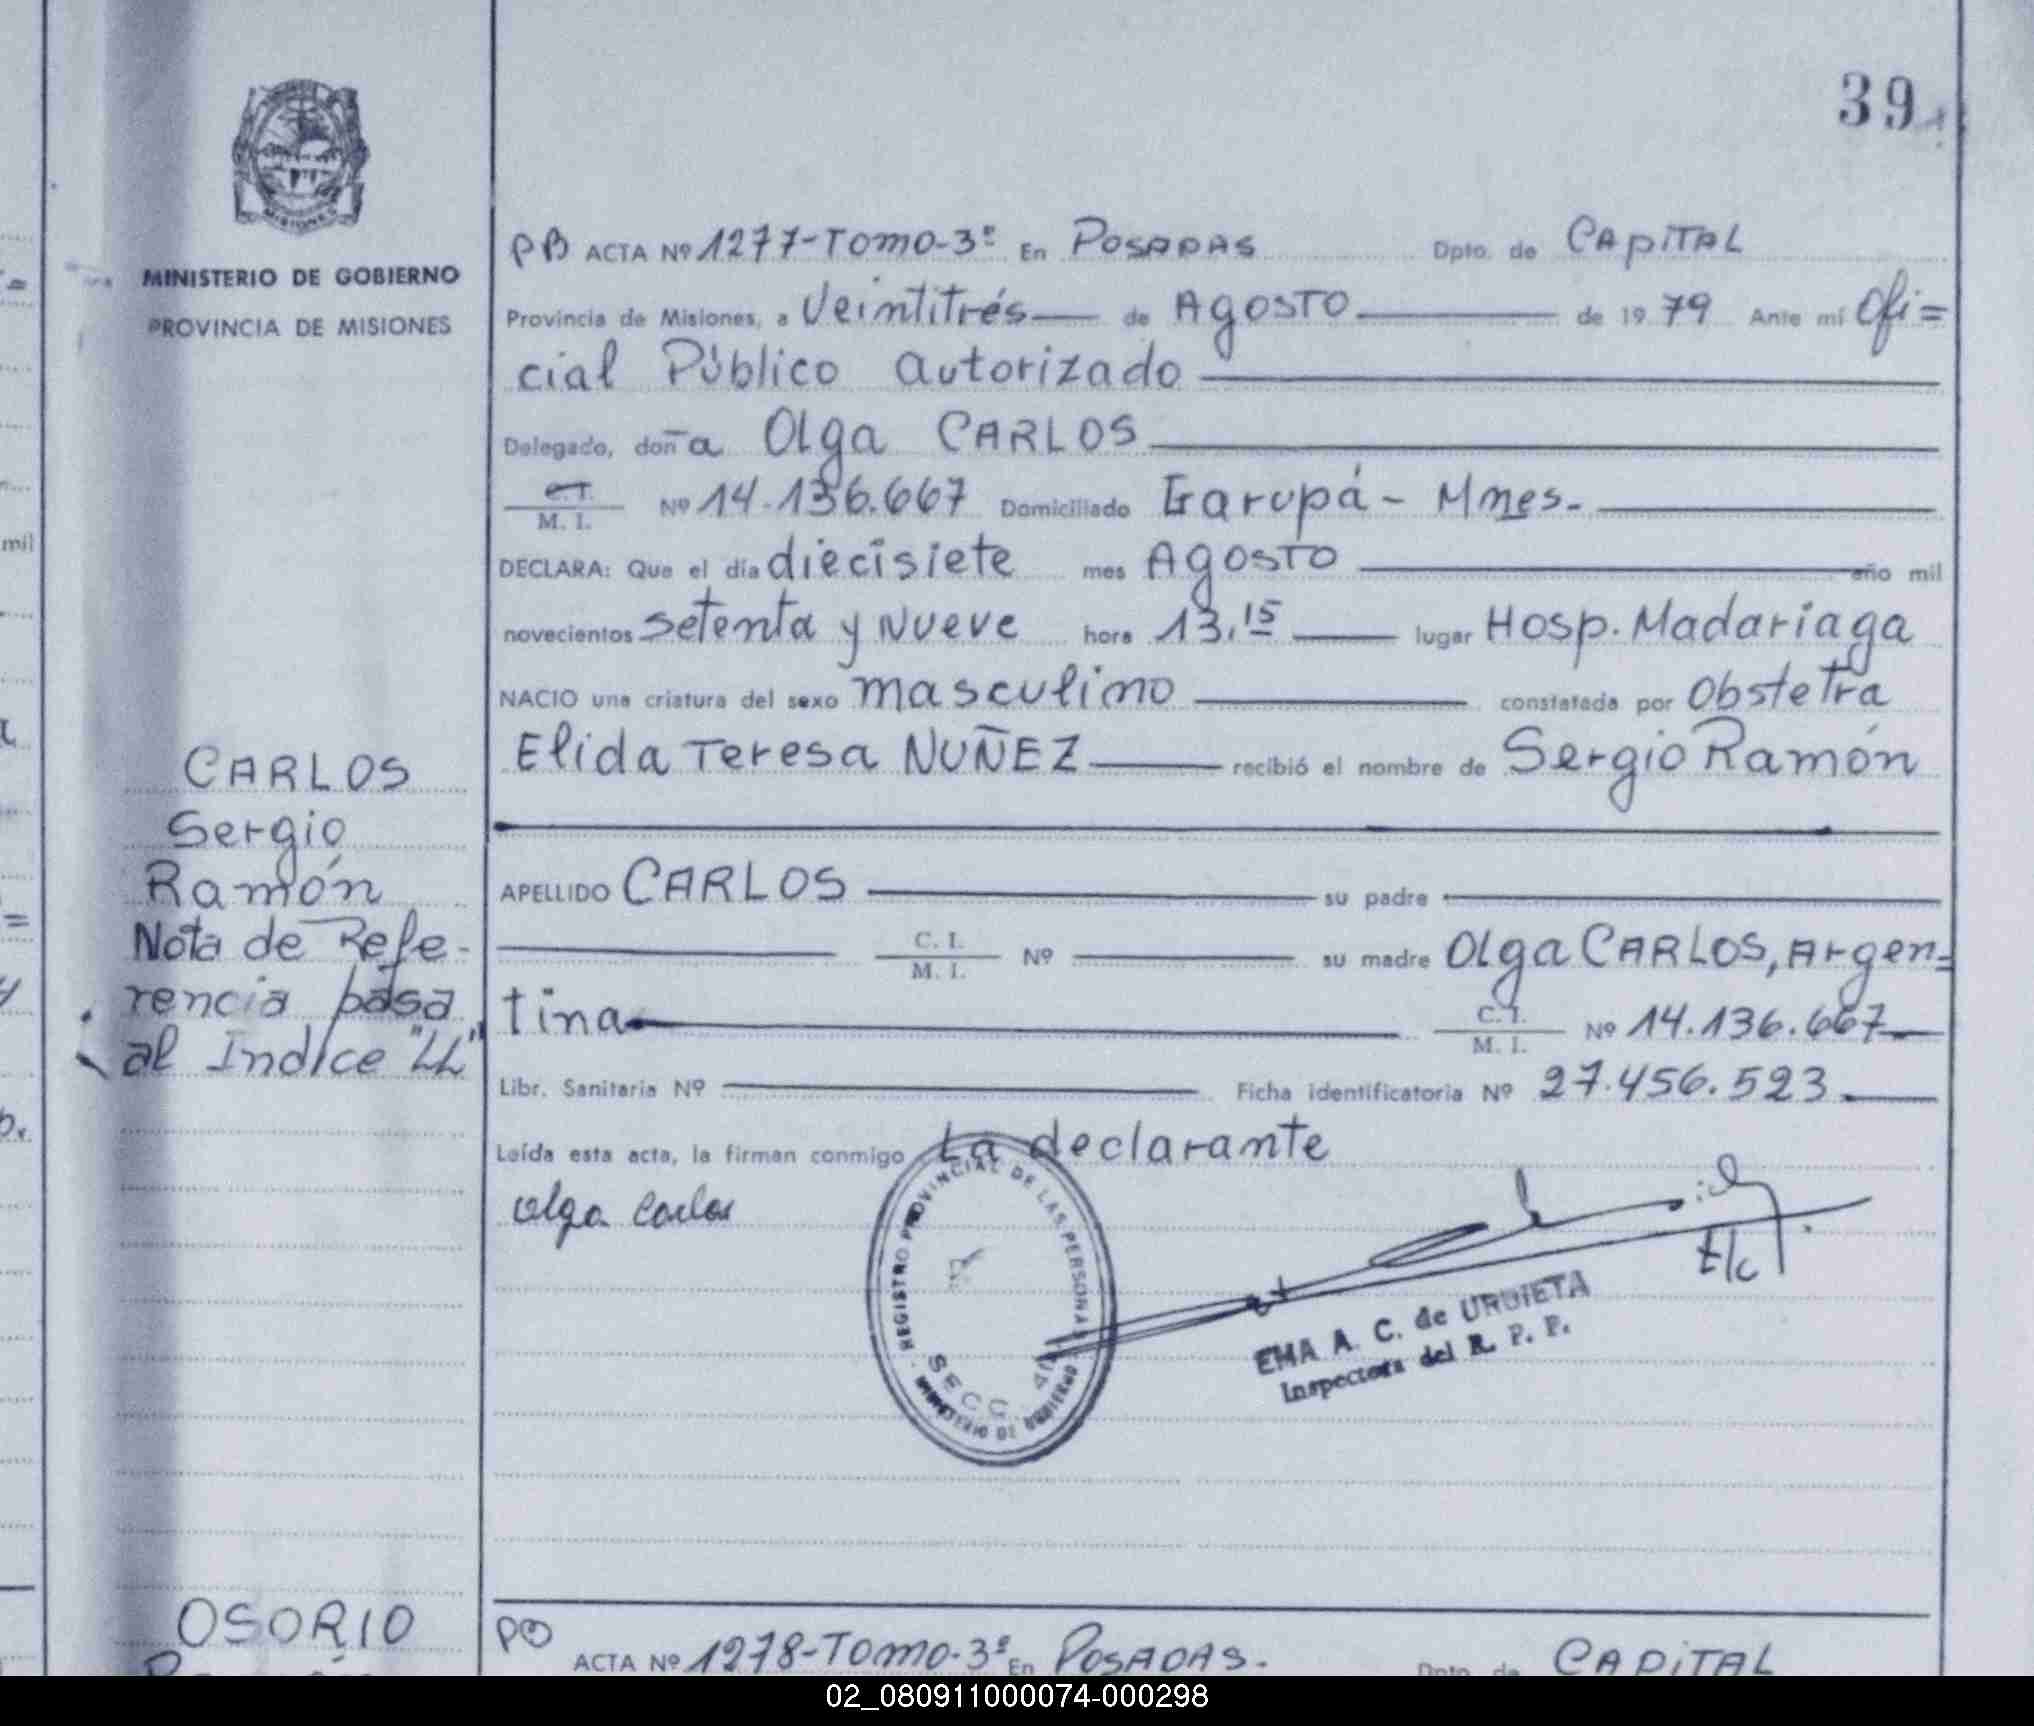 39
MINISTERIO DE GOBIERNO
PROVINCIA DE MISIONES
PB ACTA Nº 1277-Tomo-3º En POSADAS Dpto. de CAPITAL
Provincia de Misiones, a Veintitrés de AGOSTO de 1979 Ante mí Ofi=
cial Público autorizado
Delegado, doña Olga CARLOS
C.I. M. I. Nº 14.136.667 Domiciliado Garupá - Mnes.
DECLARA: Que el día diecisiete mes AGOSTO año mil
novecientos setenta y Nueve hora 13,15 lugar Hosp. Madariaga
NACIO una criatura del sexo masculino constatada por Obstetra
Elida Teresa NUÑEZ recibió el nombre de Sergio Ramón
CARLOS
Sergio
Ramón
Nota de Refe-
rencia pasa
al Indice "LL"
APELLIDO CARLOS su padre
C. I. M. I. Nº su madre Olga CARLOS, Argen=
tina C. I. M. I. Nº 14.136.667
Libr. Sanitaria Nº Ficha identificatoria Nº 27.456.523
Leída esta acta, la firman conmigo La declarante
Olga Carlos
REGISTRO PROVINCIAL DE LAS PERSONAS
SECC.
E/c
EMA A. C. de URDIETA
Inspectora del R. P. P.
OSORIO
PB ACTA Nº 1278-Tomo-3º En POSADAS. Dpto. de CAPITAL
02_080911000074-000298